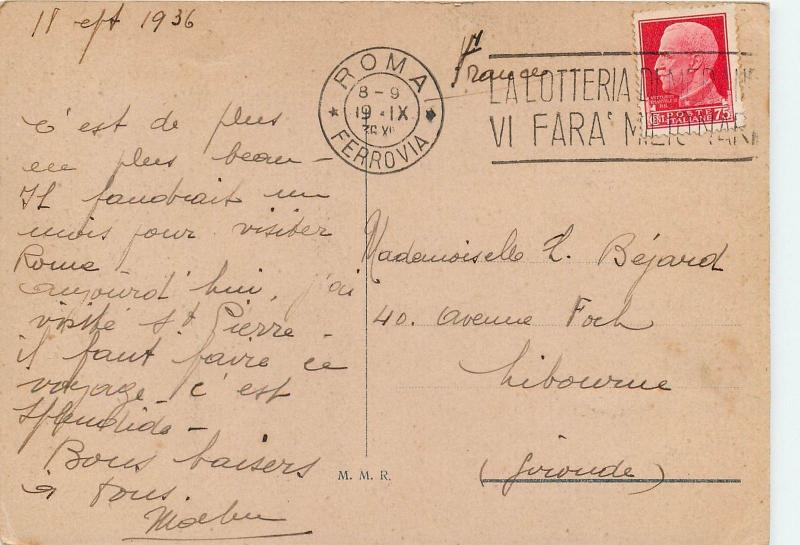 18 ept 1936
C'est de plus
en plus beau -
Il faudrait un
mois pour visiter
Rome -
aujourd'hui, j'ai
visité St Pierre -
il faut faire ce
voyage - c'est
splendide -
Bons baisers
à tous.
ROMA
8 - 9
19 · IX
FERROVIA
France
LA LOTTERIA DEI
VI FARA'
POSTE
ITALIANE
75
Mademoiselle L. Béjard
40. avenue Foch
Libourne
(Gironde)
M. M. R.